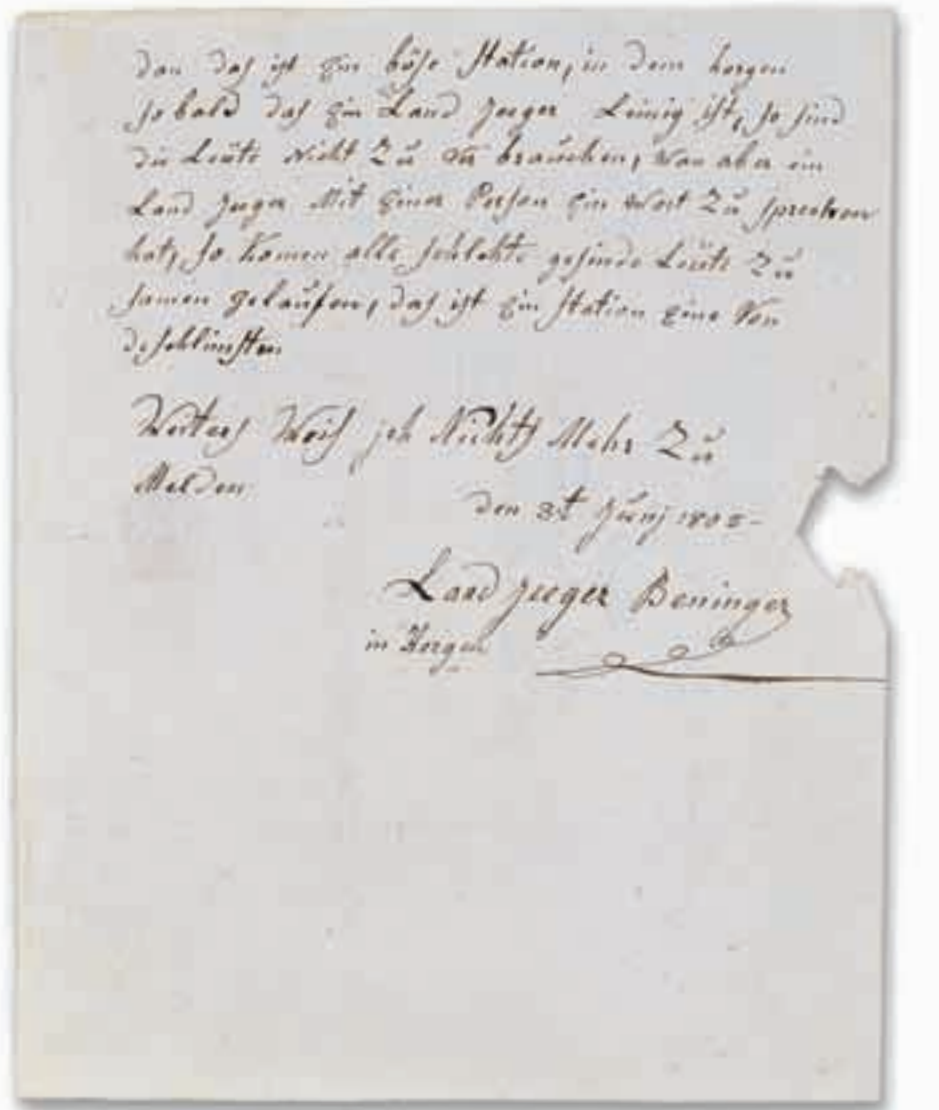 dan das ist Ein böse Station, in dem horgen
so bald das Ein Land Jeeger Leinig ist, so sind
die Leüte Nicht Zu brauchen, Wan aber ein
Land Jeeger Mit Einer Person Ein Wort Zu sprechen
hat, so Komen alle schlehte gesinde Leüte Zu
samen gelaufen, das ist Ein Station Eine Von
de schlimsten
Weiters Weis jch Nichts Mehr Zu
Melden
den 3t Junj 1805-
Land Jeeger Beninger
in Horgen